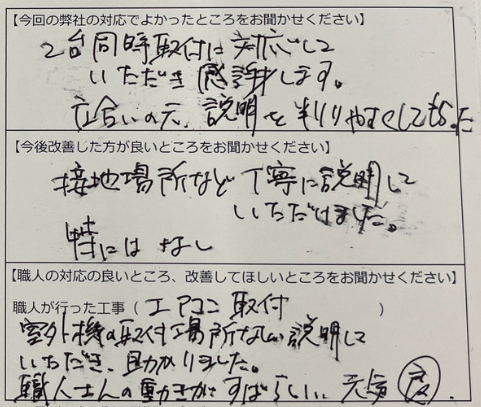 【今回の弊社の対応でよかったところをお聞かせください】
2台同時取付に対応して
いただき感謝します。
立合いの元、説明を判りやすくしてもらった
【今後改善した方が良いところをお聞かせください】
接地場所など丁寧に説明して
いただけました。
特にはなし
【職人の対応の良いところ、改善してほしいところをお聞かせください】
職人が行った工事（エアコン取付）
室外機の取付場所など説明して
いただき、助かりました。
職人さんの動きがすばらしい 元気